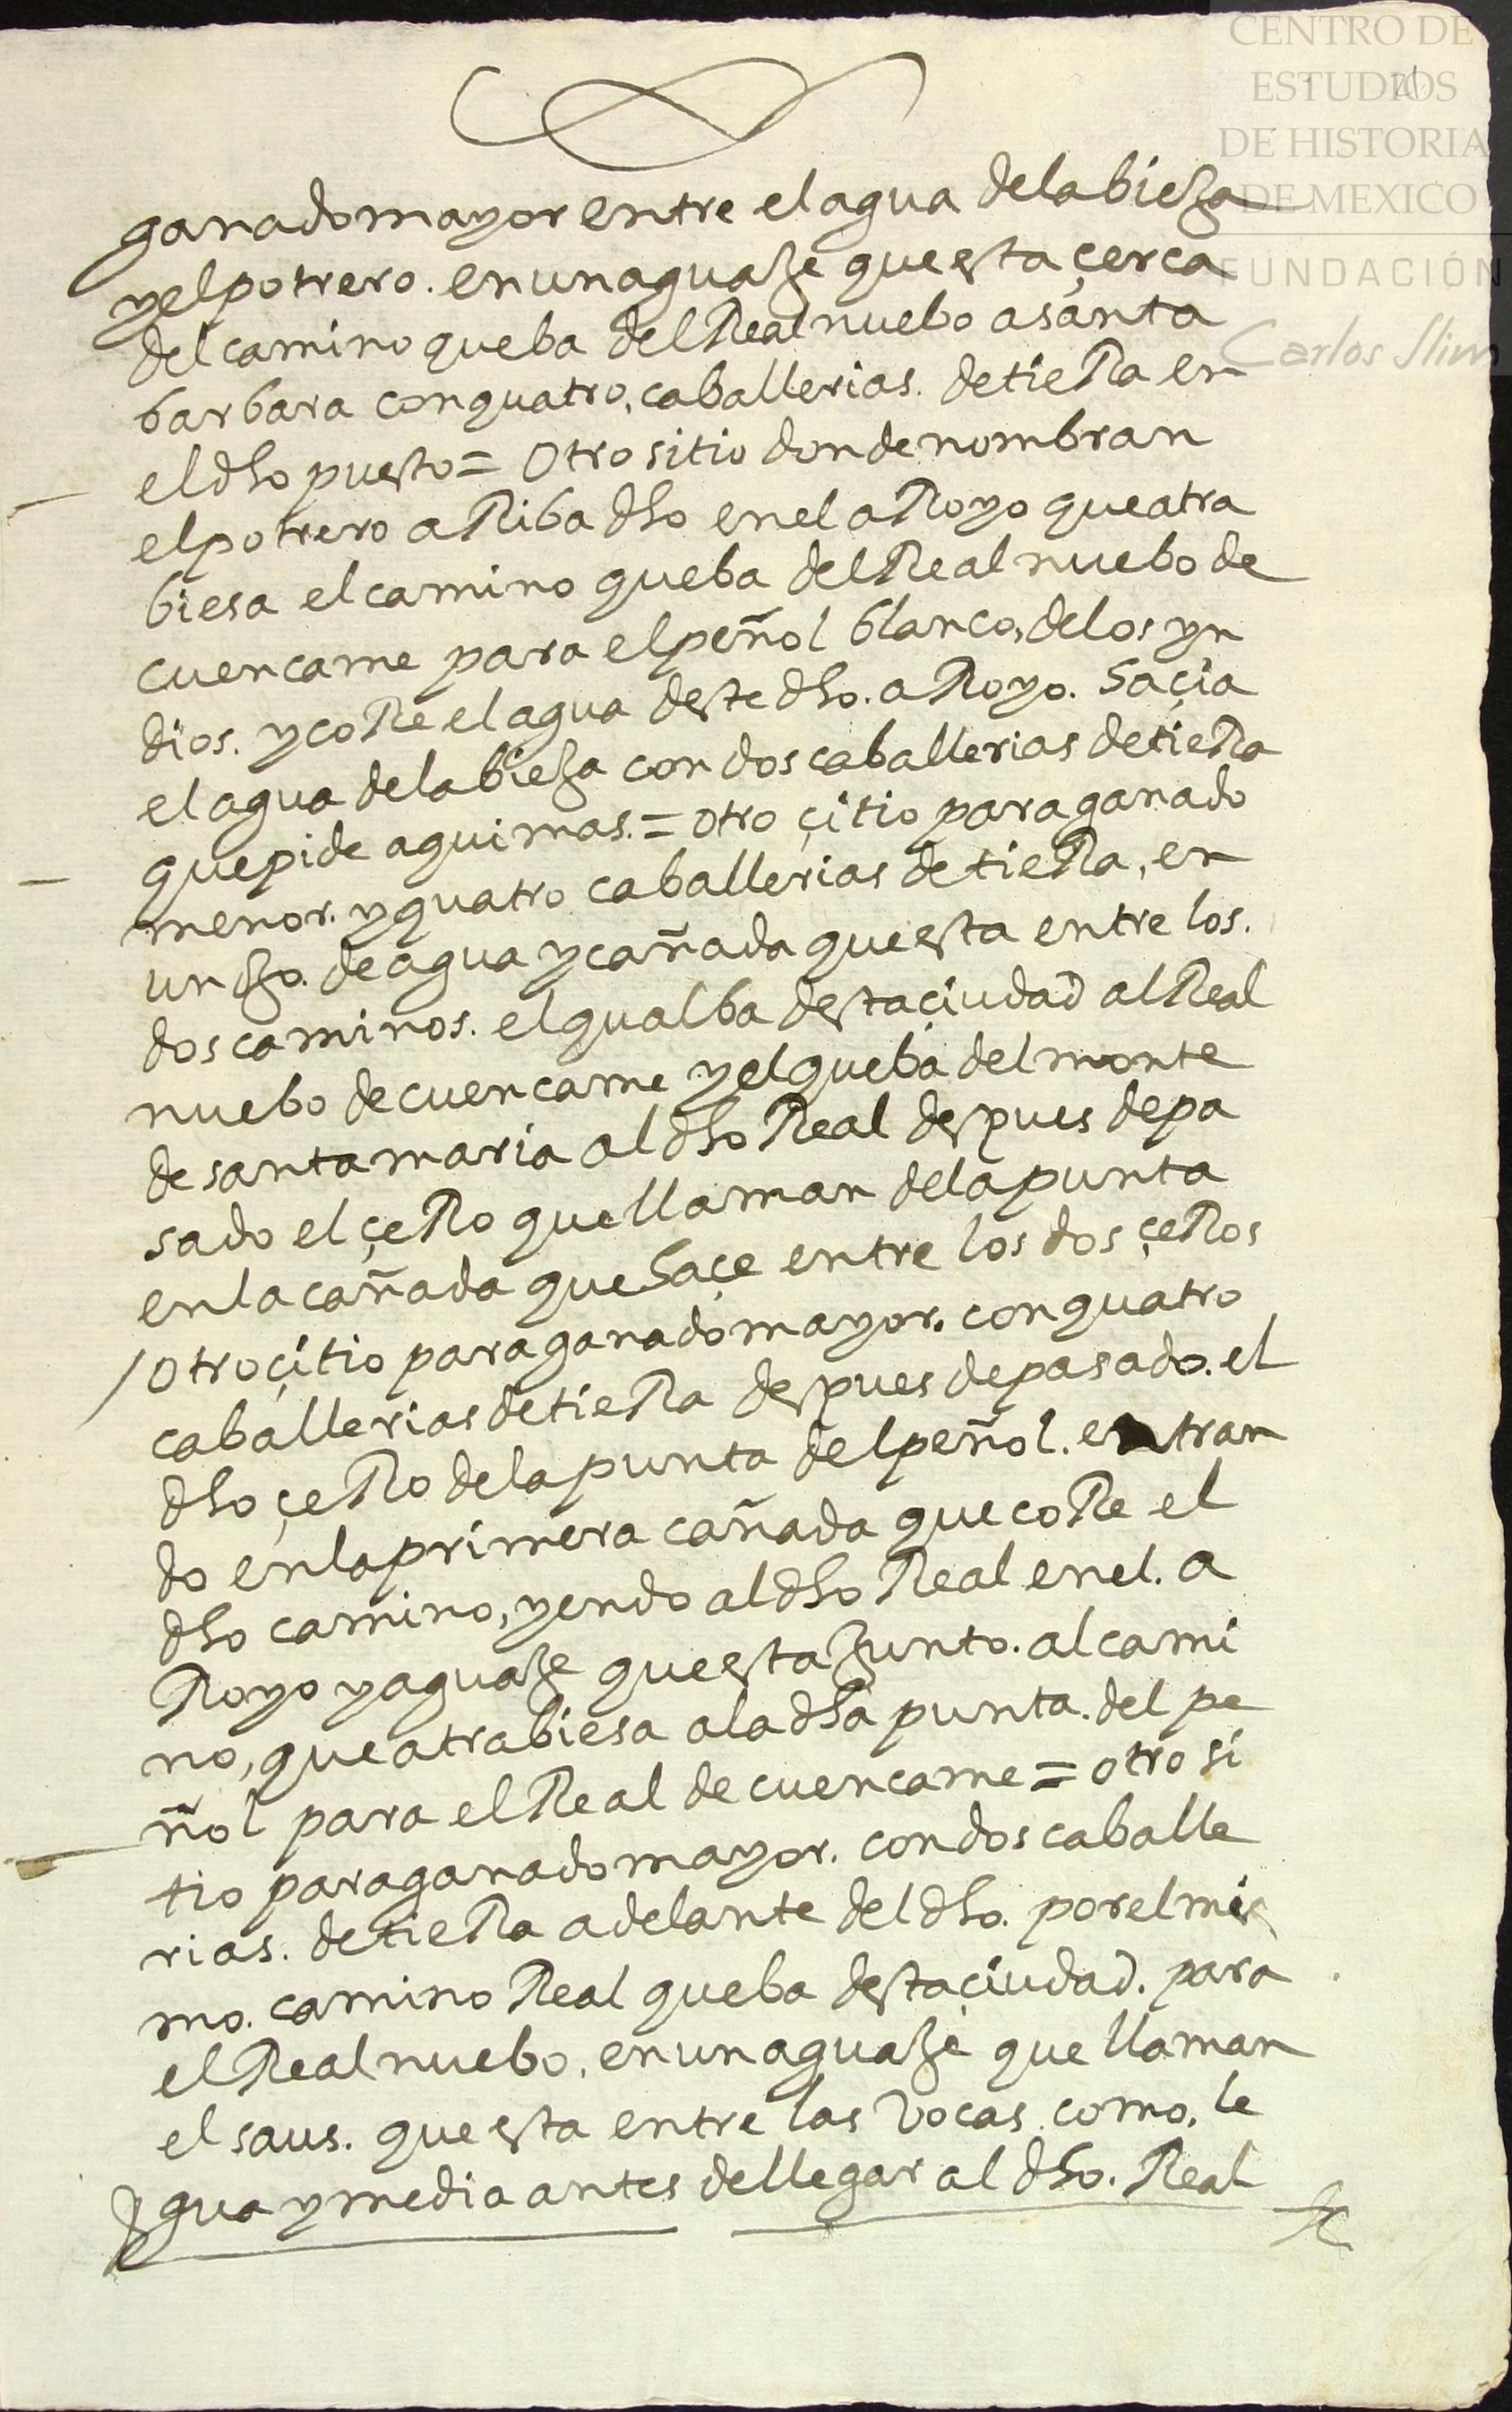 CENTRO DE
ESTUDIOS
DE HISTORIA
DE MEXICO
FUNDACIÓN
Carlos Slim
ganado mayor entre el agua de la bieja
y el potrero. en un aguaje que esta çerca
del camino que ba del Real nuebo a santa
barbara con quatro, caballerias. de tieRa en
el dho puesto = Otro sitio donde nombran
el potrero aRiba dho en el aRoyo que atra
biesa el camino que ba del Real nuebo de
cuencame para el peñol blanco, de los yn
dios. y coRe el agua deste dho. aRoyo. haçia
el agua de la bieja con dos caballerias de tieRa
que pide aqui mas. = otro çitio para ganado
menor. y quatro caballerias de tieRa, en
un ojo. de agua y cañada que esta entre los.
dos caminos. el qual ba desta çiudad al Real
nuebo de cuencame y el que ba del monte
de santa maria al dho Real despues de pa
sado el çeRo que llaman de la punta
en la cañada que haçe entre los dos çeRos
/ Otro çitio para ganado mayor. con quatro
caballerias de tieRa despues de pasado. el
dho çeRo de la punta del peñol. entran
do en la primera cañada que coRe el
dho camino, yendo al dho Real en el. a
Royo y aguaje que esta junto. al cami
no, que atrabiesa a la dha punta. del pe
ñol para el Real de cuencame = otro si
tio para ganado mayor. con dos caballe
rias. de tieRa adelante del dho. por el mis
mo. camino Real que ba desta çiudad. para
el Real nuebo, en un aguaje que llaman
el saus. que esta entre las vocas como, le
gua y media antes de llegar al dho. Real